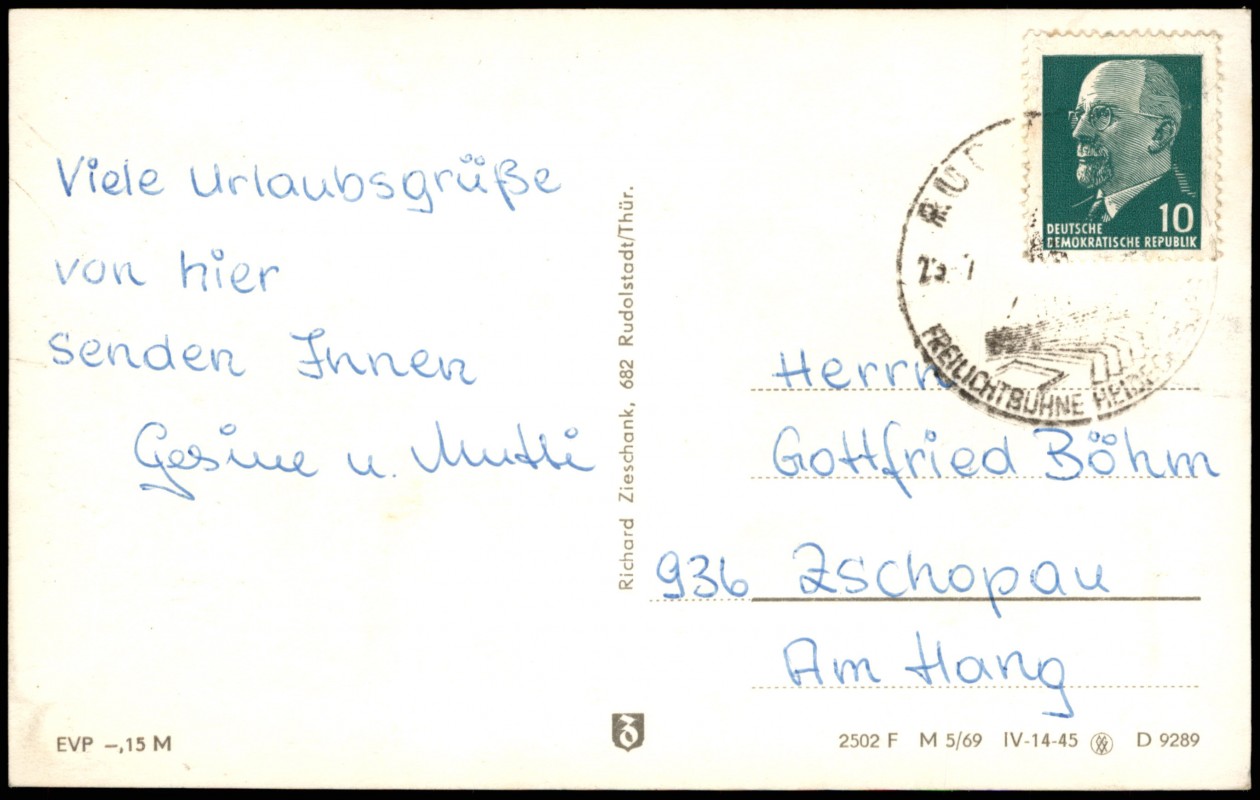 Viele Urlaubsgrüße
von hier
senden Ihnen
Gesine u. Mutti
EVP –,15 M
Richard Zieschank, 682 Rudolstadt/Thür.
DEUTSCHE
DEMOKRATISCHE REPUBLIK
10
FREILICHTBÜHNE
Herrn
Gottfried Böhm
936 Zschopau
Am Hang
2502 F M 5/69 IV-14-45 D 9289